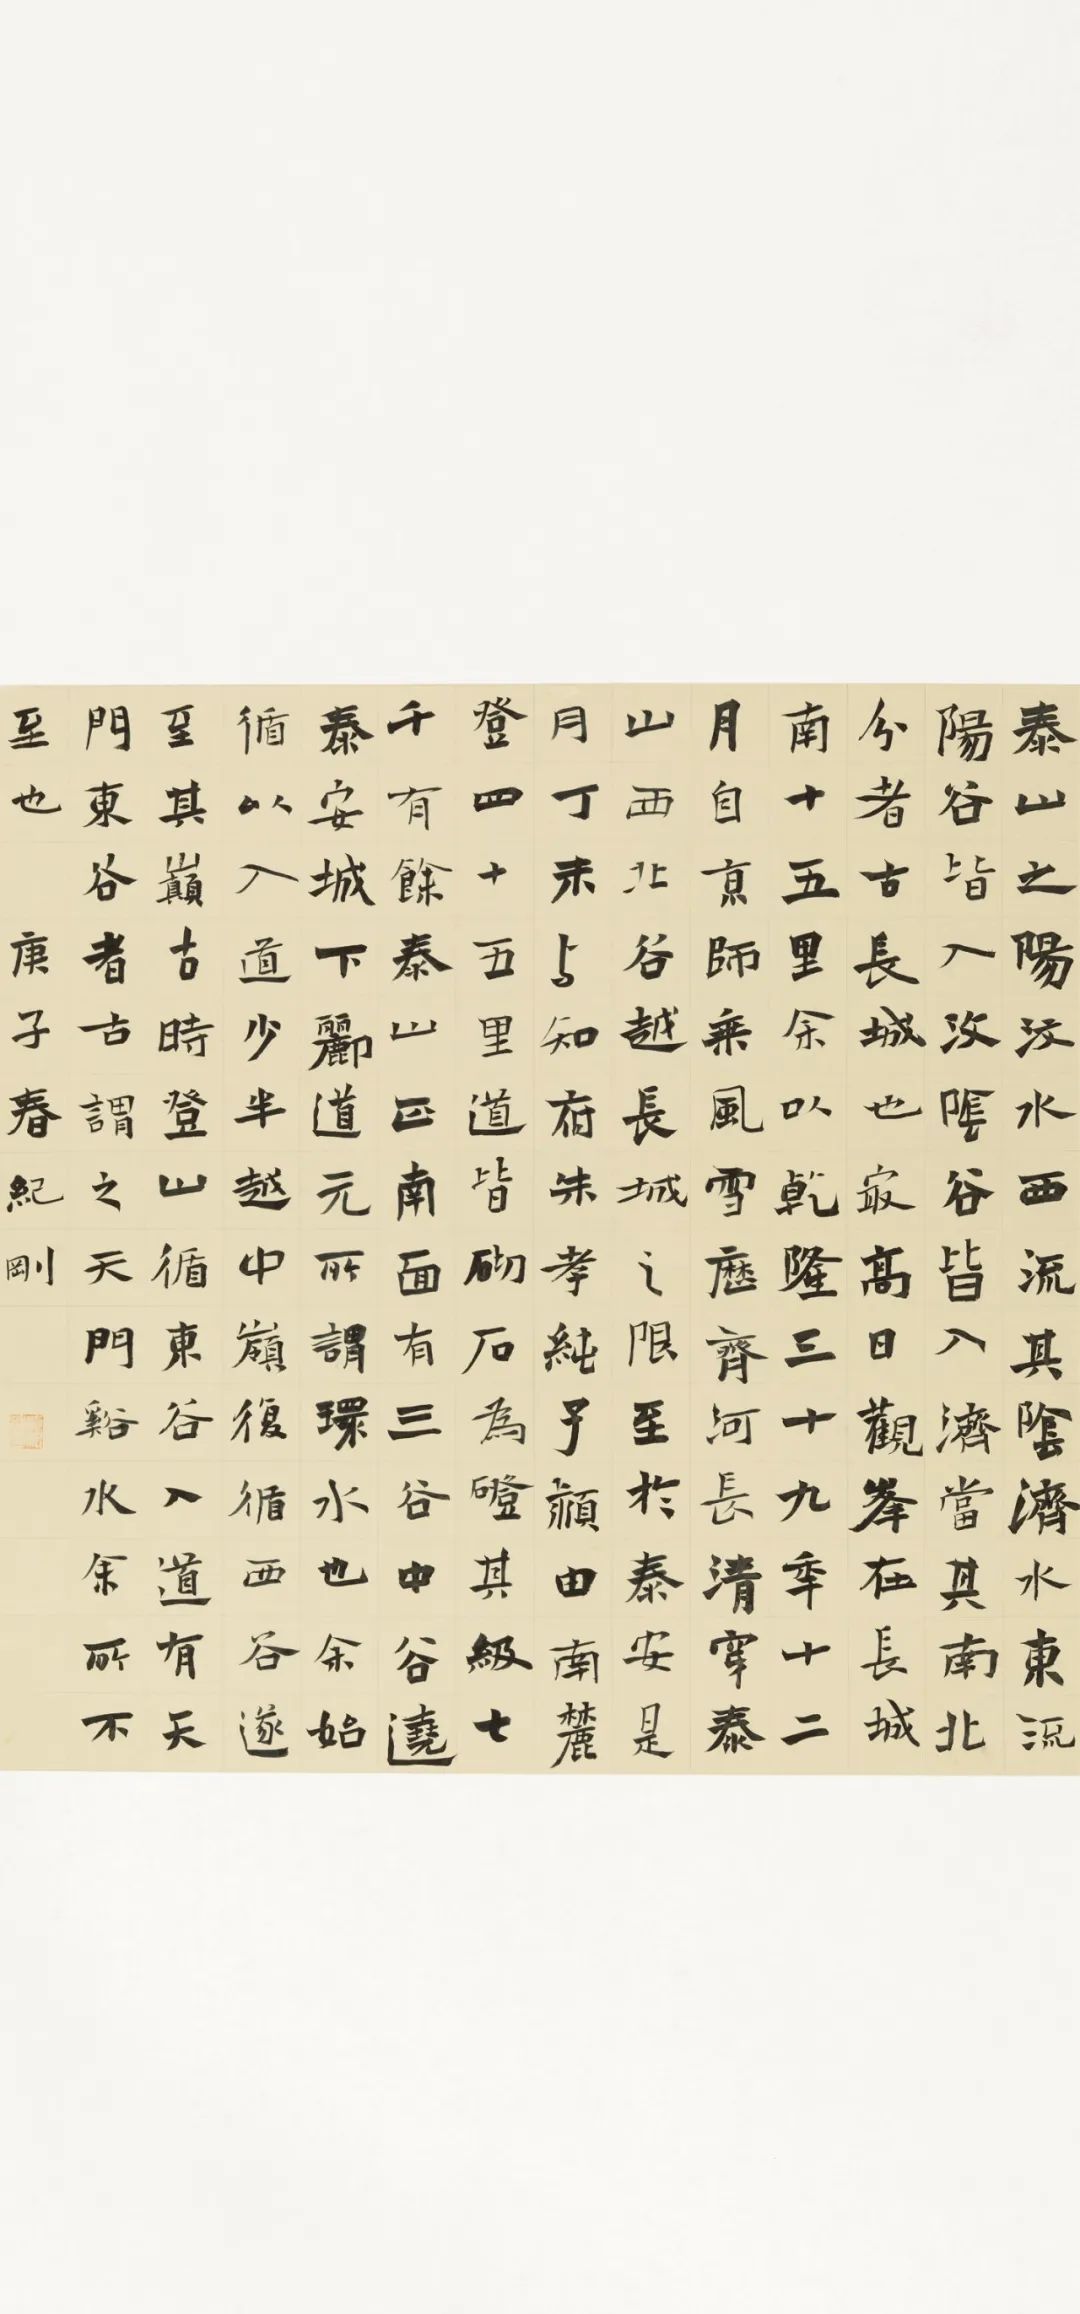 泰山之陽汶水西流其陰濟水東流
陽谷皆入汶陰谷皆入濟當其南北
分者古長城也最高日觀峯在長城
南十五里余以乾隆三十九年十二
月自京師乘風雪歷齊河長清穿泰
山西北谷越長城之限至於泰安是
月丁未與知府朱孝純子潁由南麓
登四十五里道皆砌石為磴其級七
千有餘泰山正南面有三谷中谷遶
泰安城下酈道元所謂環水也余始
循以入道少半越中嶺復循西谷遂
至其巔古時登山循東谷入道有天
門東谷者古謂之天門谿水余所不
至也 庚子春紀剛